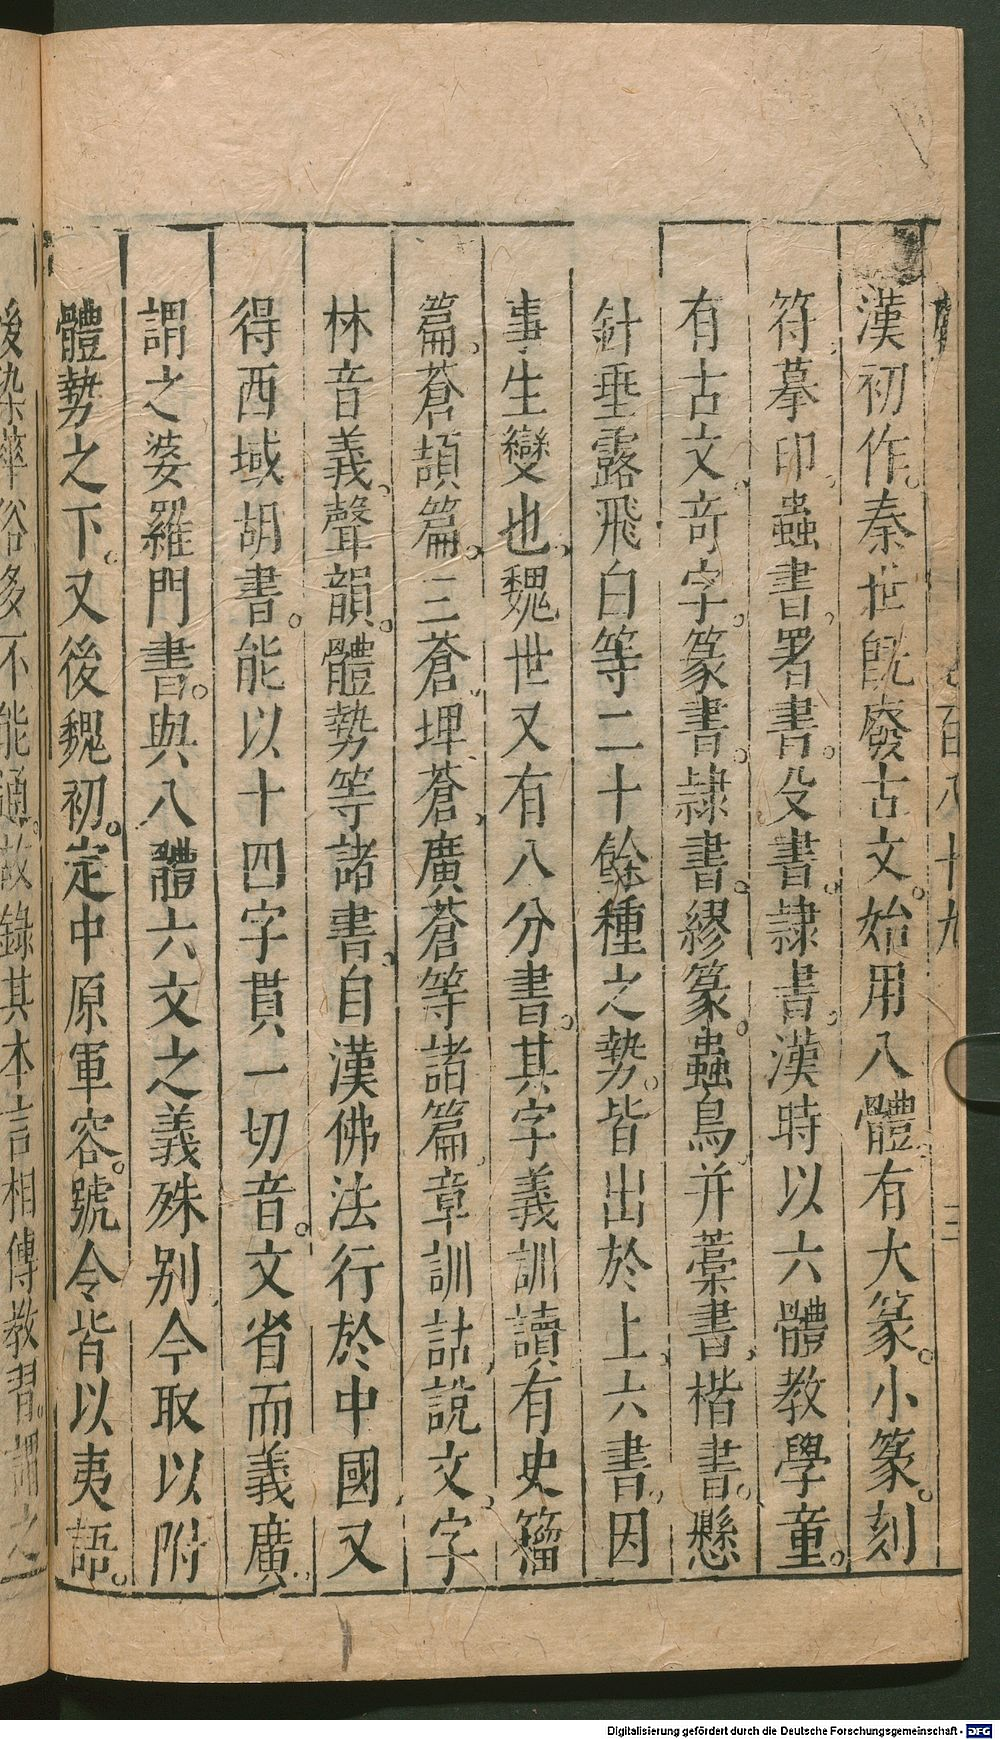 百八十九 三
漢初作。秦世旣廢古文。始用八體。有大篆。小篆。刻
符。摹印。蟲書。署書。殳書。隷書。漢時以六體教學童。
有古文、奇字。篆書。隷書。繆篆。蟲鳥。并藁書、楷書。懸
針垂露飛白等二十餘種之勢。皆出於上六書。因
事生變也。魏世又有八分書。其字義訓讀有史籀
篇。蒼頡篇。三蒼、埤蒼、廣蒼等諸篇。章訓詁、說文、字
林音義。聲韻。體勢等諸書。自漢佛法行於中國、又
得西域胡書。能以十四字貫一切音。文省而義廣。
謂之婆羅門書。與八體六文之義殊别、今取以附
體勢之下。又後魏初。定中原軍容。號令皆以夷語。
後染華俗多不能通。故錄其本言相傳教習。謂之
Digitalisierung gefördert durch die Deutsche Forschungsgemeinschaft - DFG